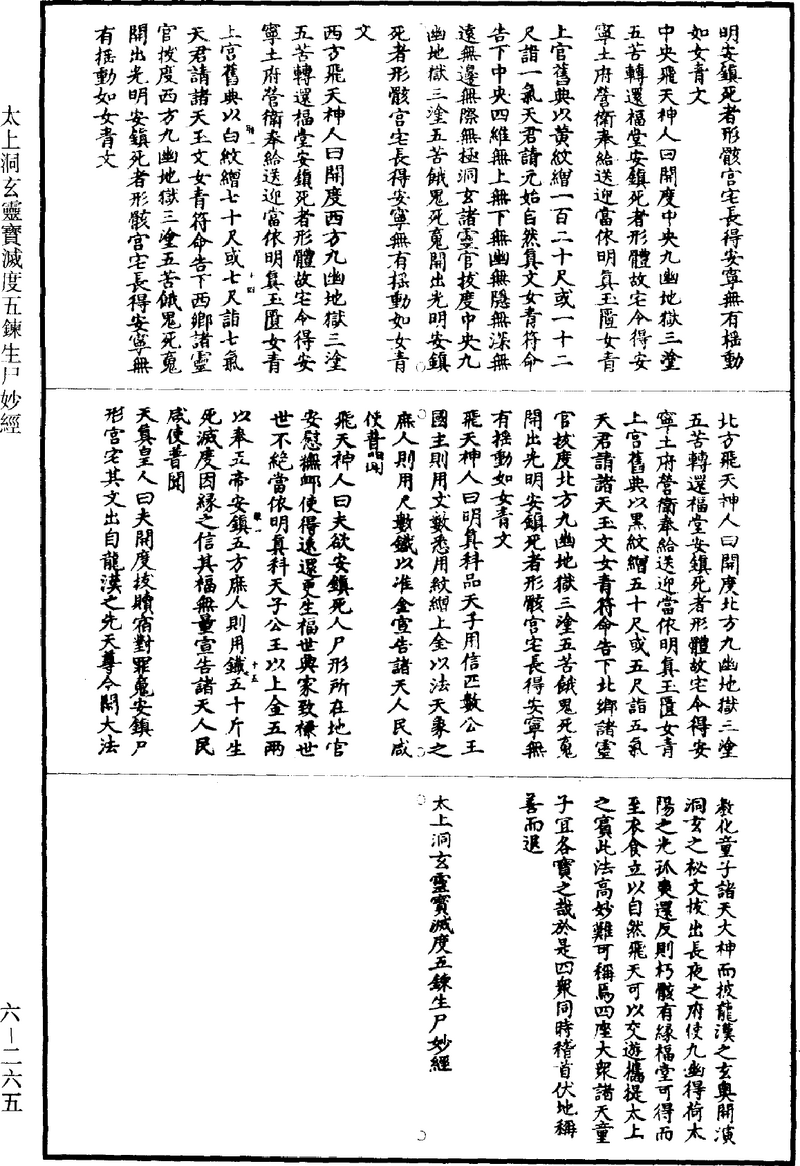 明安鎮死者形骸宫宅長得安寧無有摇動
如女青文
中央飛天神人曰開度中央九幽地獄三塗
五苦轉還福堂安鎮死者形體故宅今得安
寧土府營衛奉給送迎當依明真玉匱女青
上官舊典以黄紋繒一百二十尺或一十二
尺詣一氣天君請元始自然真文女青符命
告下中央四維無上無下無幽無隱無深無
遠無邊無際無極洞玄諸靈官拔度中央九
幽地獄三塗五苦餓鬼死䰟開出光明安鎮
死者形骸官宅長得安寧無有摇動如女青
文
西方飛天神人曰開度西方九幽地獄三塗
五苦轉還福堂安鎮死者形體故宅今得安
寧土府營衛奉給送迎當依明真玉匱女青
上宫舊典以白紋繒七十尺或七尺詣七氣
天君請諸天玉文女青符命告下西鄉諸靈
官拔度西方九幽地獄三塗五苦餓鬼死䰟
開出光明安鎮死者形骸官宅長得安寧無
有摇動如女青文
北方飛天神人曰開度北方九幽地獄三塗
五苦轉還福堂安鎮死者形體故宅今得安
寧土府營衛奉給送迎當依明真玉匱女青
上宫舊典以黑紋繒五十尺或五尺詣五氣
天君請諸天玉文女青符命告下北鄉諸靈
官拔度北方九幽地獄三塗五苦餓鬼死䰟
開出光明安鎮死者形骸官宅長得安寧無
有摇動如女青文
飛天神人曰明真科品天子用信匹數公王
國主則用丈數悉用紋繒上金以法天象之
庶人則用尺數鐵以准金宣告諸天人民咸
使普聞
飛天神人曰夫欲安鎮死人尸形所在地官
安慰撫卹使得速還更生福世興家致祿世
世不絶當依明真科天子公王以上金五兩
以奉五帝安鎮五方庶人則用鐵五十斤生
死滅度因緣之信其福無量宣告諸天人民
咸使普聞
天真皇人曰夫開度拔贖宿對罪䰟安鎮尸
形宫宅其文出自龍漢之先天尊今開大法
教化童子諸天大神而披龍漢之玄奥開演
洞玄之祕文拔出長夜之府使九幽得荷太
陽之光抓爽還反則朽骸有緣福堂可得而
至衣食立以自然飛天可以交遊攜提太上
之賓此法高妙難可稱焉四座大衆諸天童
子宜各寶之哉於是四衆同時稽首伏地稱
善而退
太上洞玄靈寶滅度五鍊生尸妙經
太上洞玄靈寶滅度五鍊生尸妙經
六—二六五